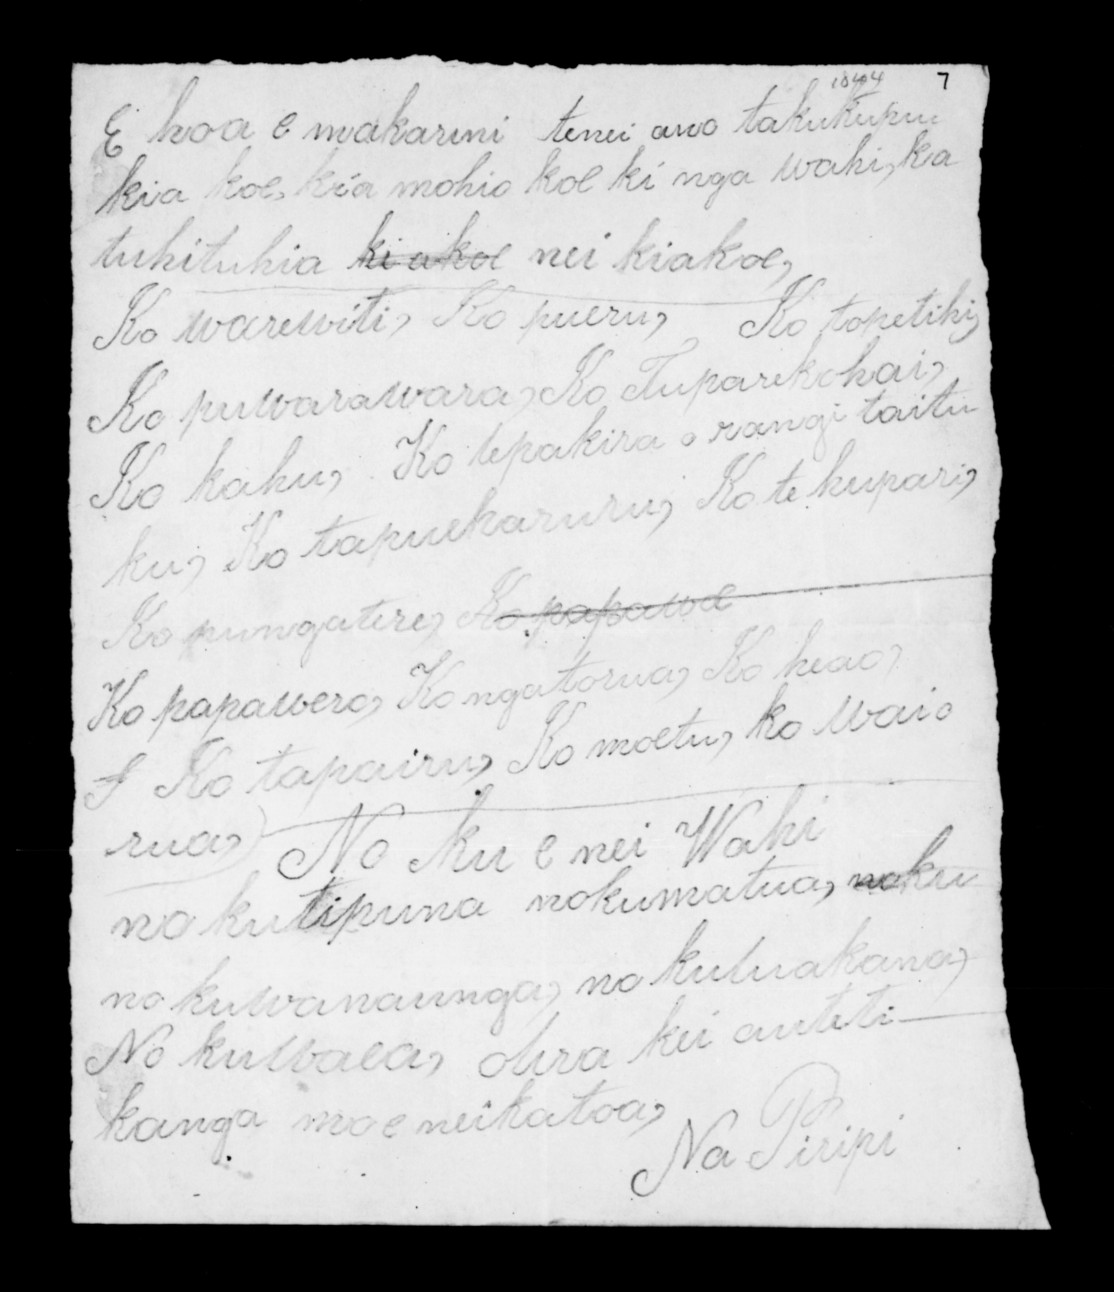 1044 7
E hoa e makarini tenei ano takukupu
kia koe, kia mohio koe ki nga wahi, ka
tuhituhia kiakoe nei kiakoe,
Ko warewiti, Ko pueru, Ko topetihi,
Ko puwarawara, Ko Tuparekohai,
Ko kahu, Ko tepakira o rangi taitu
ku, Ko tapuekaruru, Ko te kupari,
Ko pungatere, Ko papawe
Ko papawero, Ko ngatorua, Ko heao,
Ko tapairu, Ko moetu, ko waio
rua,
No ku e nei Wahi
no kutipuna nokumatua, noku
no kuwanaunga, no kutuakana,
No kuwaea, kei
kanga mo e neikatoa,
Na Piripi